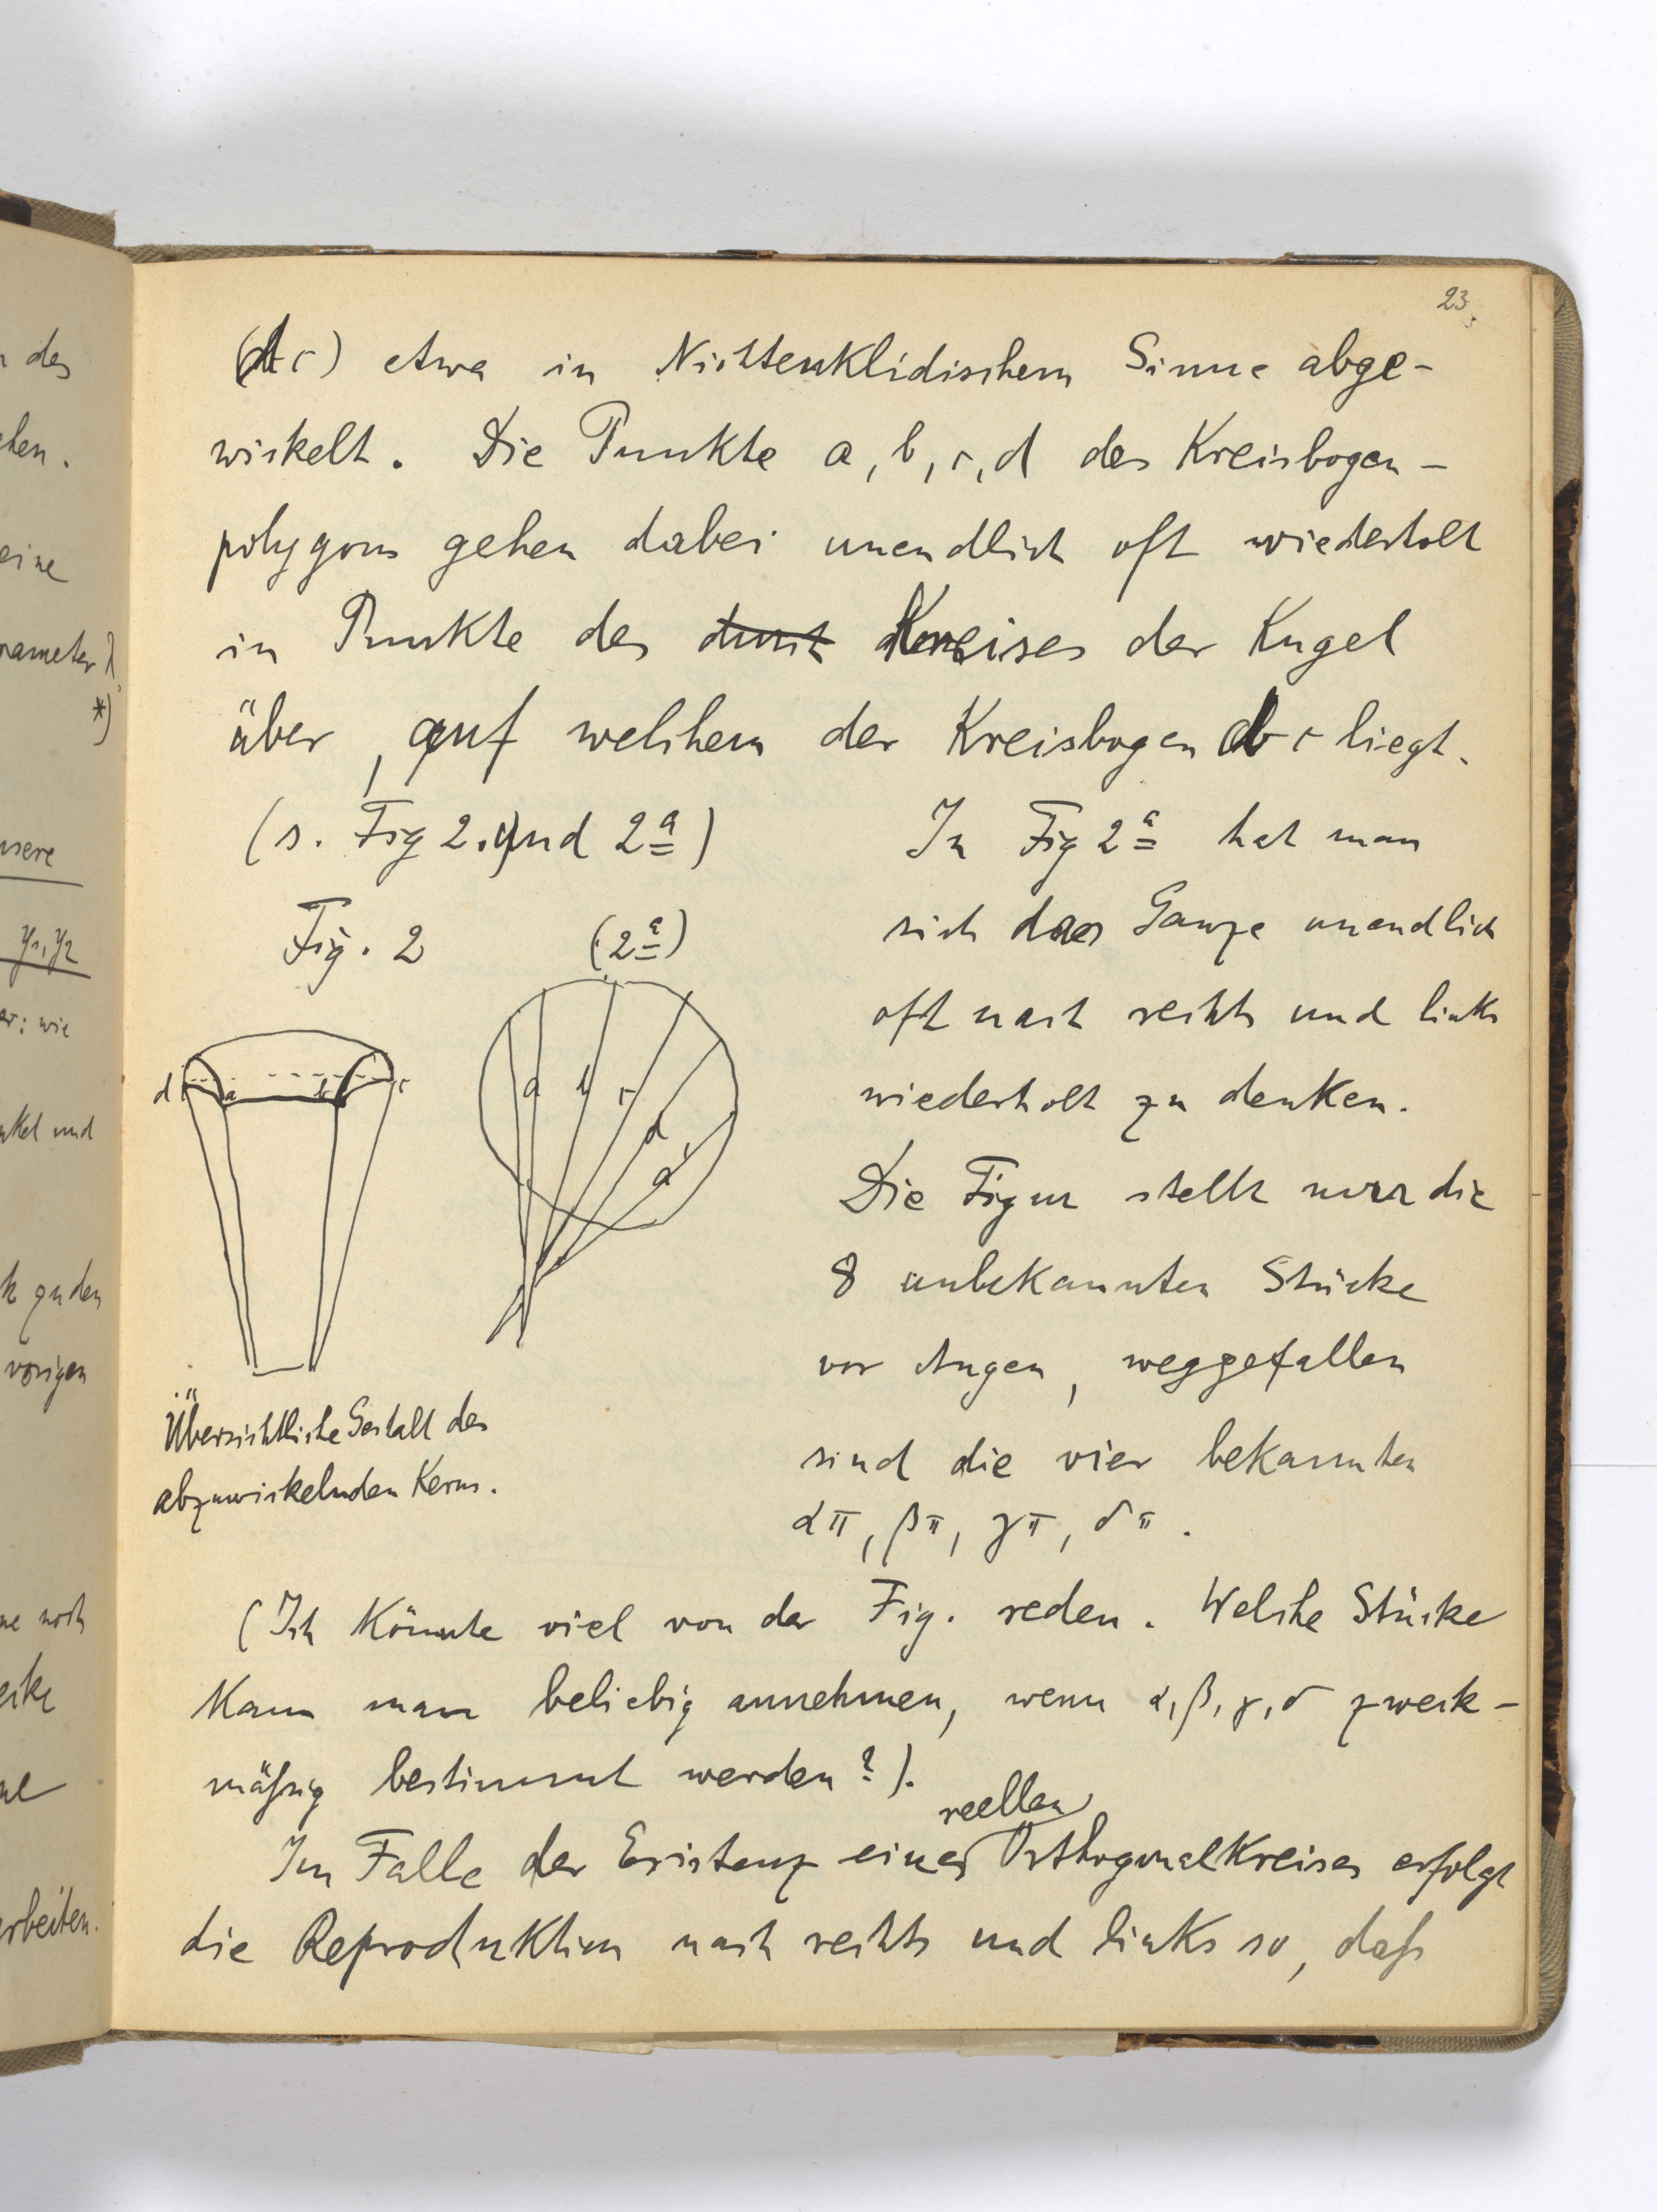 23.
(dc) etwa in Nichteuklidischem Sinne abge-
wickelt. Die Punkte a, b, c, d des Kreisbogen-
polygons gehen dabei unendlich oft wiederholt
in Punkte des durch Kreises der Kugel
über, auf welchem der Kreisbogen dc liegt.
(s. Fig 2. und 2a)
Fig. 2 (2a)
d a b c
a b c d a'
Übersichtliche Gestalt des
abzuwickelnden Kerns.
In Fig 2a hat man
sich das Ganze unendlich
oft nach rechts und links
wiederholt zu denken.
Die Figur stellt nur die
8 unbekannten Stücke
vor Augen, weggefallen
sind die vier bekannten
απ, βπ, γπ, δπ.
(Ich könnte viel von der Fig. reden. Welche Stücke
kann man beliebig annehmen, wenn α, β, γ, δ zweck-
mäßig bestimmt werden?).
reellen
Im Falle der Existenz eines Orthogonalkreises erfolgt
die Reproduktion nach rechts und links so, daß
n des
ehen.
eine
rameter λ
*)
nsere
y1, y2
ar: wie
nkel und
k zu den
vorigen
ne noch
ecke
arbeiten.